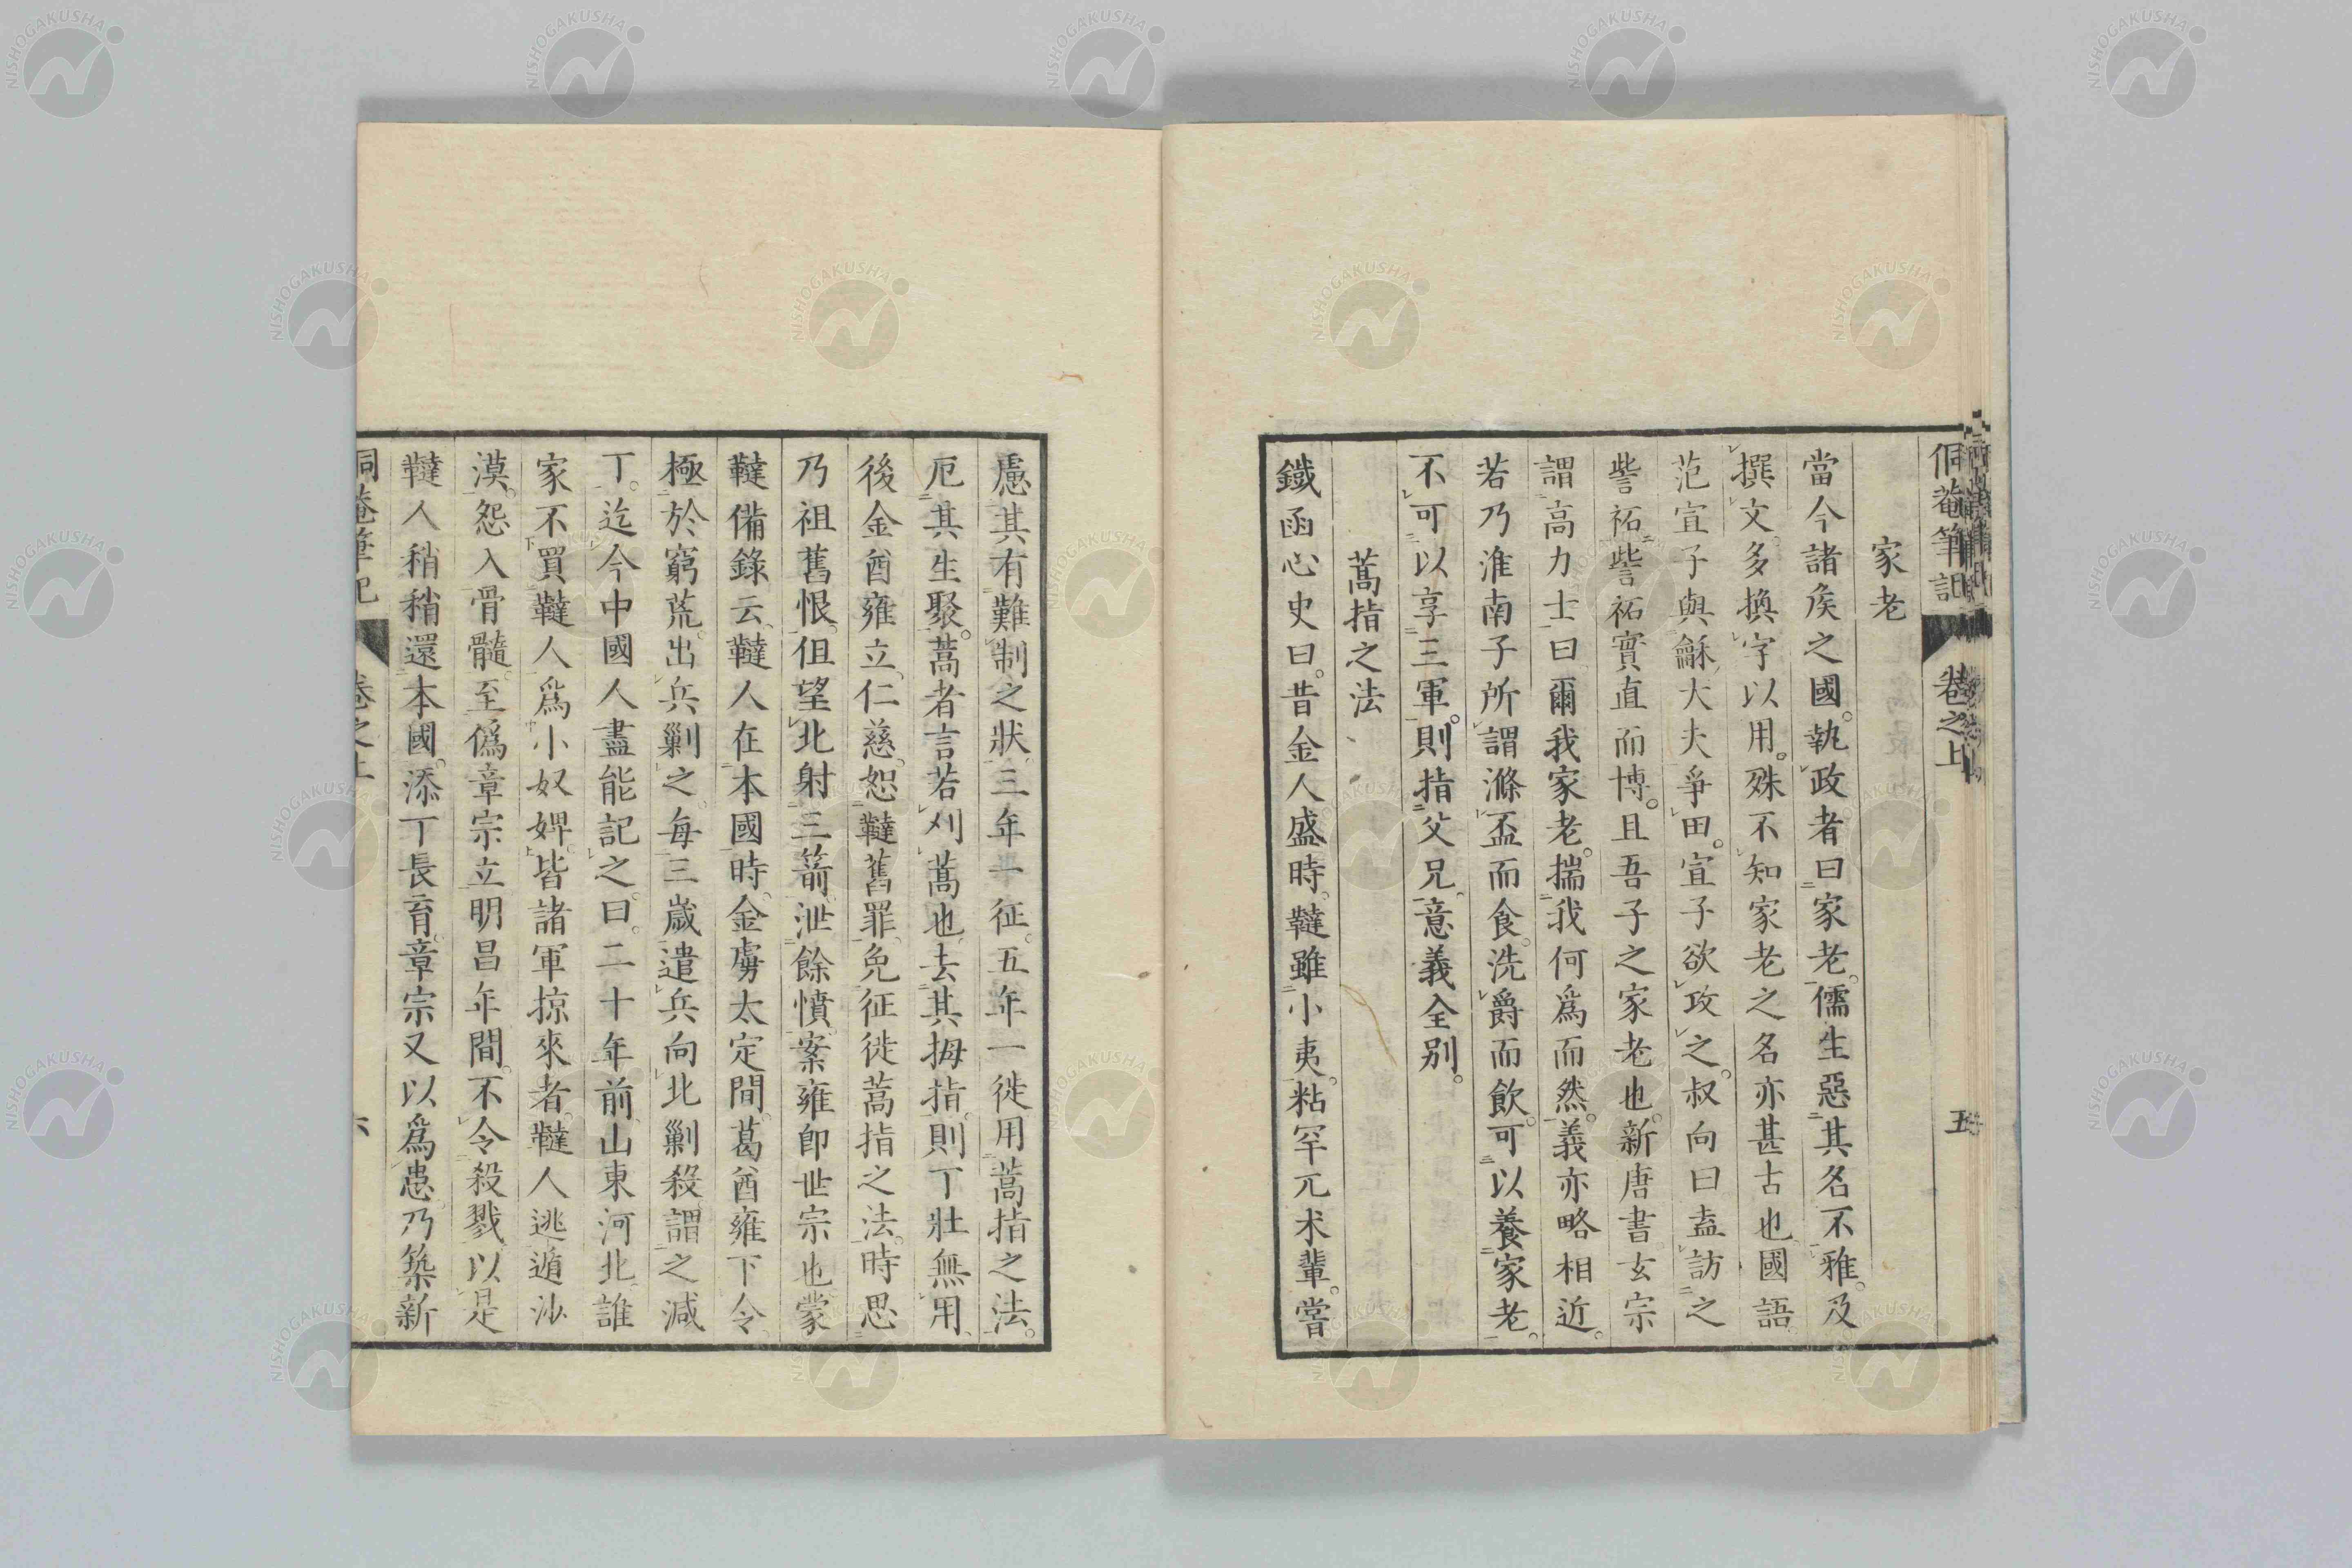 侗菴筆記 卷之上 五
家老
當今諸矦之國。執政者曰家老。儒生惡其名不雅。及
撰文。多換字以用。殊不知家老之名亦甚古也。國語
范宣子與龢大夫爭田。宣子欲攻之。叔向曰盍訪之
訾祏。訾祏實直而博。且吾子之家老也。新唐書玄宗
謂高力士曰爾我家老。揣我何爲而然。義亦略相近。
若乃淮南子所謂滌盃而食。洗爵而飲。可以養家老。
不可以享三軍。則指父兄。意義全別。
蒿指之法
鐵函心史曰。昔金人盛時。韃雖小夷。粘罕兀术輩。嘗
慮其有難制之狀。三年一征。五年一徙用蒿指之法。
厄其生聚。蒿者言若刈蒿也。去其拇指。則丁壯無用。
後金酋雍立。仁慈。恕韃舊罪。免征徙蒿指之法。時思
乃祖舊恨。但望北射三箭。泄餘憤。案雍卽世宗也蒙
韃備錄云。韃人在本國時。金虜太定間。葛酋雍下令
極於窮荒。出兵剿之。每三歲遣兵向北剿殺。謂之減
丁。迄今中國人盡能記之。曰。二十年前。山東河北。誰
家不買韃人爲小奴婢。皆諸軍掠來者。韃人逃遁沙
漠。怨入骨髓。至僞章宗立。明昌年間。不令殺戮。以是
韃人稍稍還本國。添丁長育。章宗又以爲患。乃築新
侗菴筆記 卷之上 六
NISHOGAKUSHA